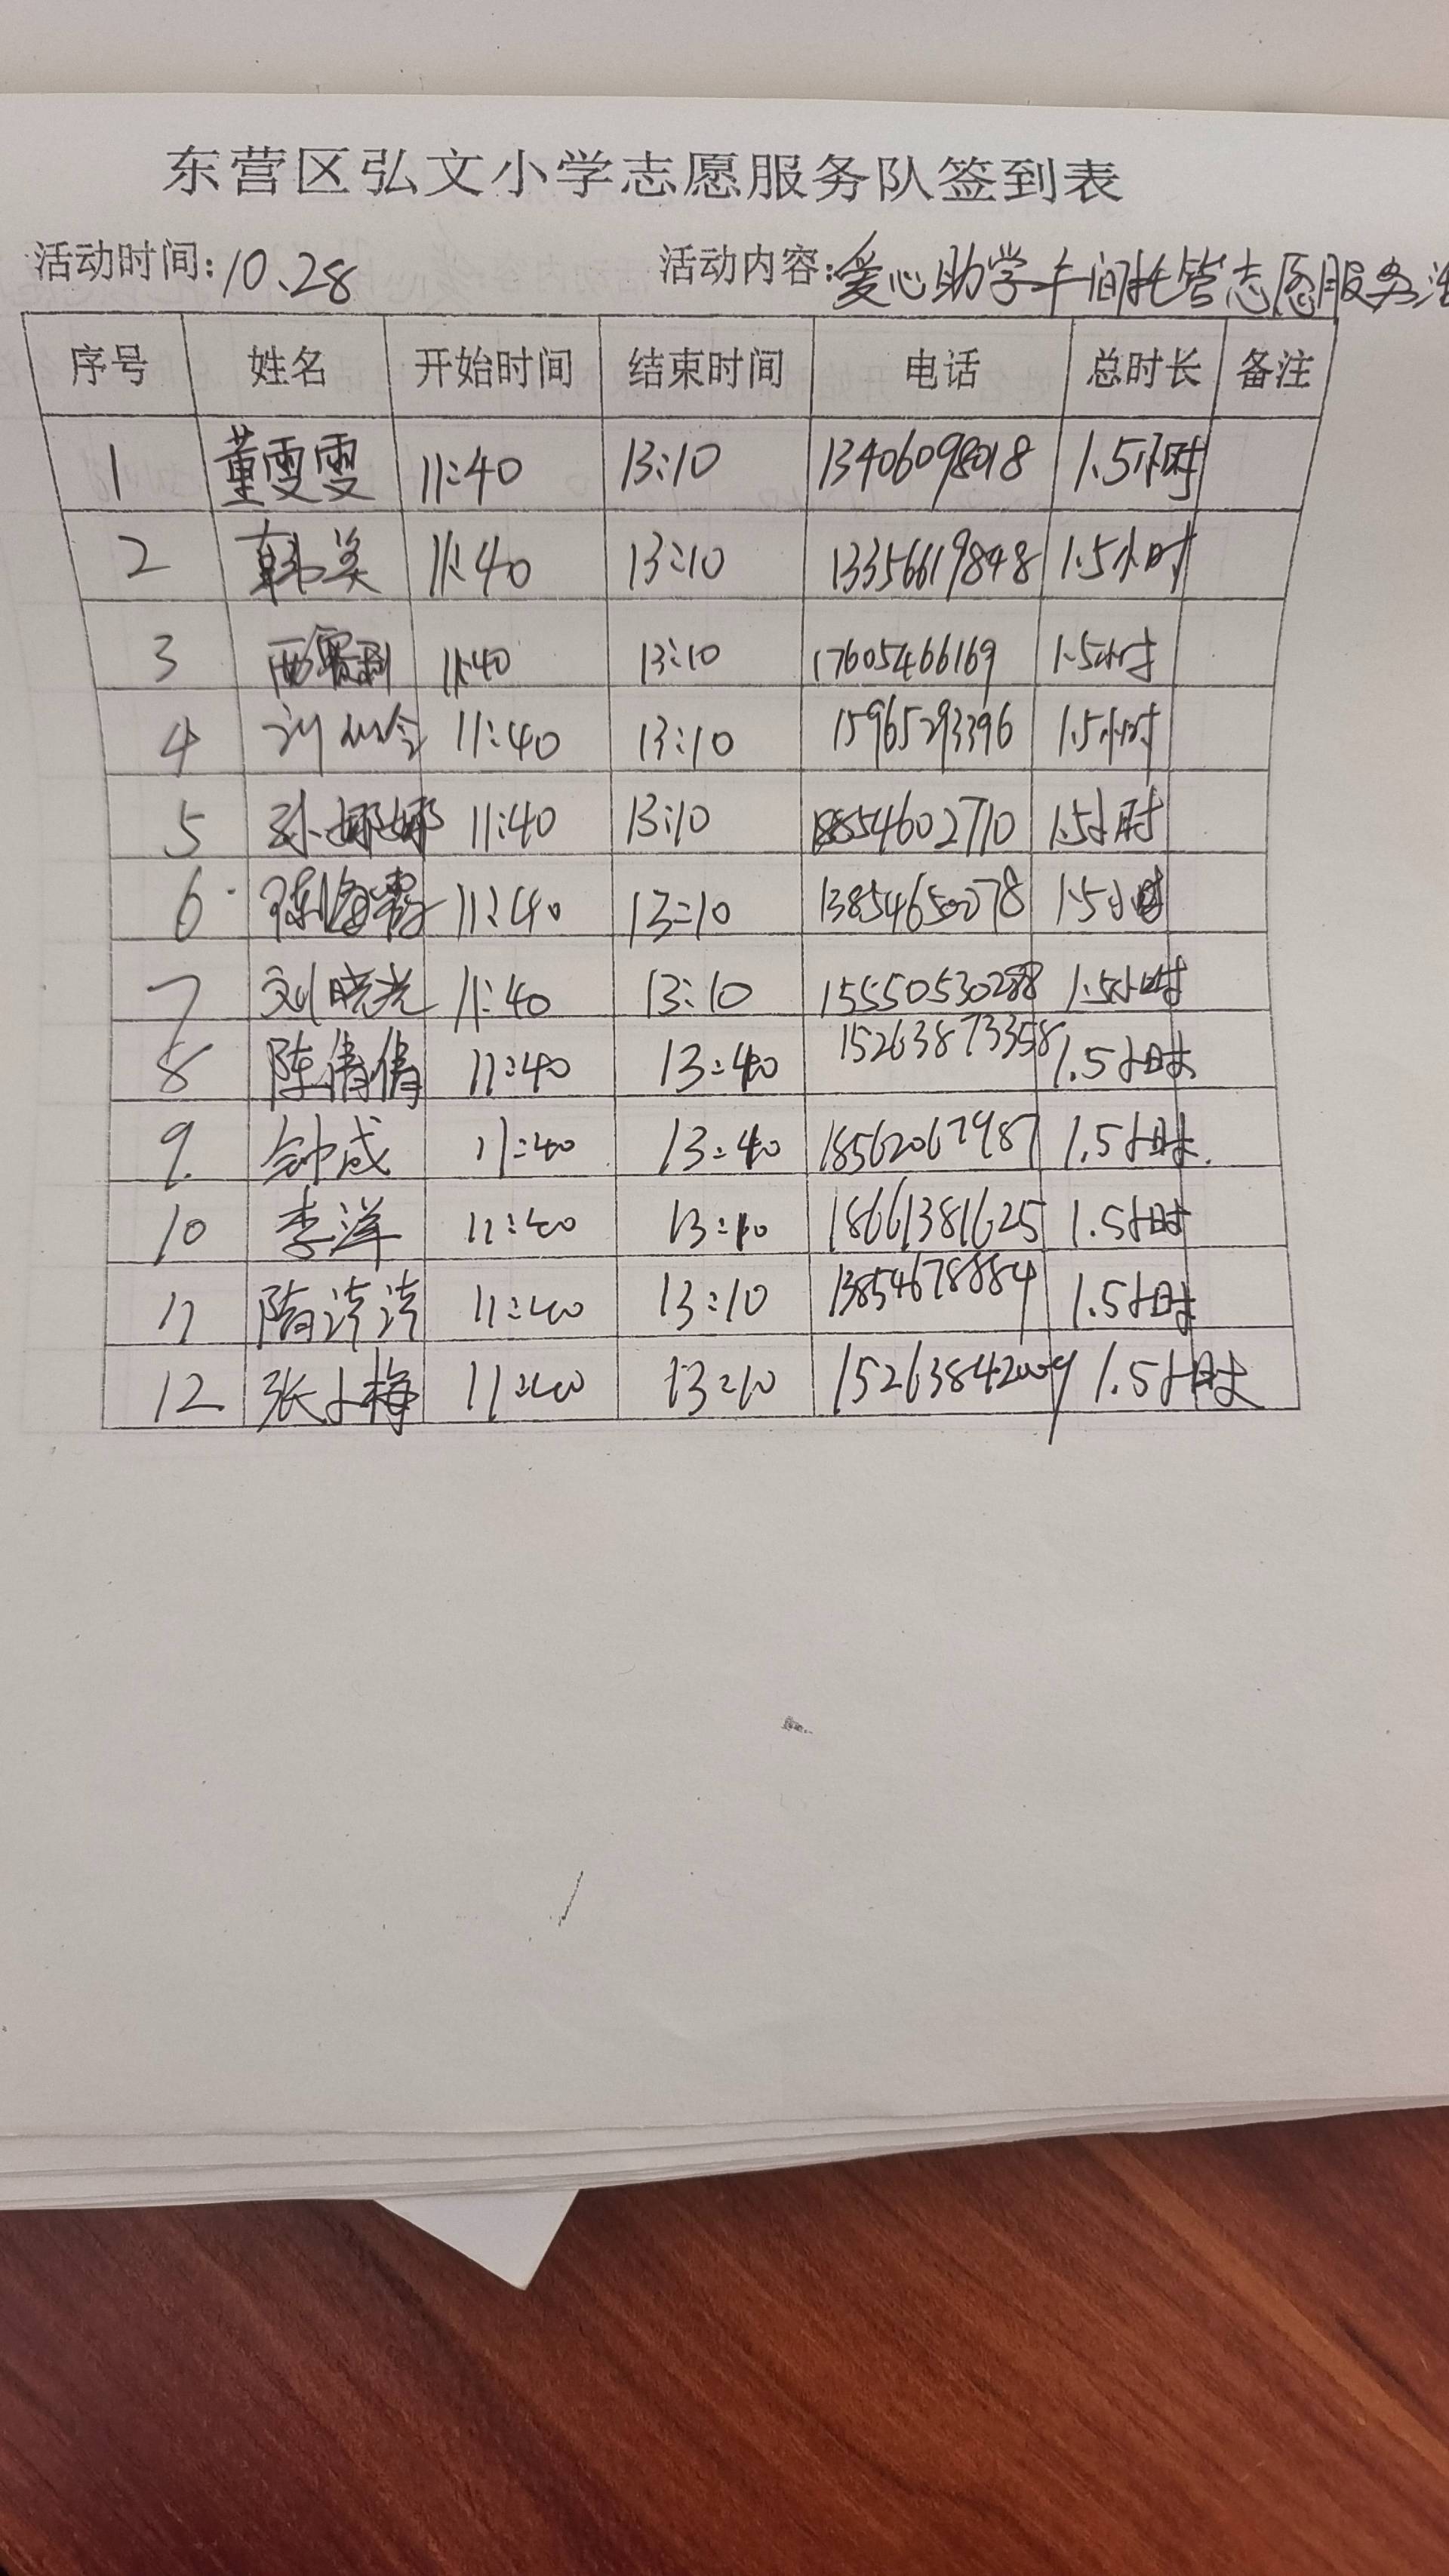 东营区弘文小学志愿服务队签到表
活动时间:10.28 活动内容:爱心助学午间托管志愿服务活
序号 姓名 开始时间 结束时间 电话 总时长 备注
1 董雯雯 11:40 13:10 13406098018 1.5小时
2 韩英 11:40 13:10 13356619848 1.5小时
3 11:40 13:10 17605466169 1.5小时
4 11:40 13:10 15965293396 1.5小时
5 孙娜娜 11:40 13:10 18554602710 1.5小时
6 陈海霞 11:40 13:10 13854650078 1.5小时
7 刘晓光 11:40 13:10 15550530288 1.5小时
8 陈倩倩 11:40 13:40 15263873358 1.5小时
9. 钟成 11:40 13:40 18562067987 1.5小时.
10 李洋 11:40 13:10 18661381625 1.5小时
11 隋涛涛 11:40 13:10 13854678884 1.5小时
12 张小梅 11:40 13:10 15263842009 1.5小时